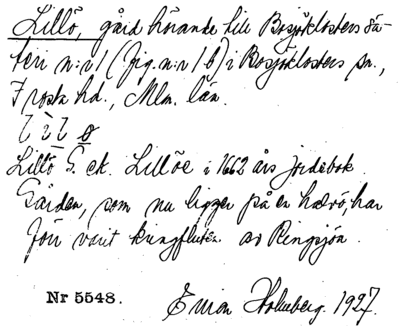 Lillö, gård hörande till Bosjöklosters sä-
teri n:r 1 (fig. n:r 1 b) i Bosjöklosters sn.,
Frosta hd., Mlm. län.
Lillö G. ek. Lillöe i 1662 års jordebok.
Gården, som nu ligger på en halvö, har
förr varit kringfluten av Ringsjön.
Nr 5548.
Holmberg. 1927.